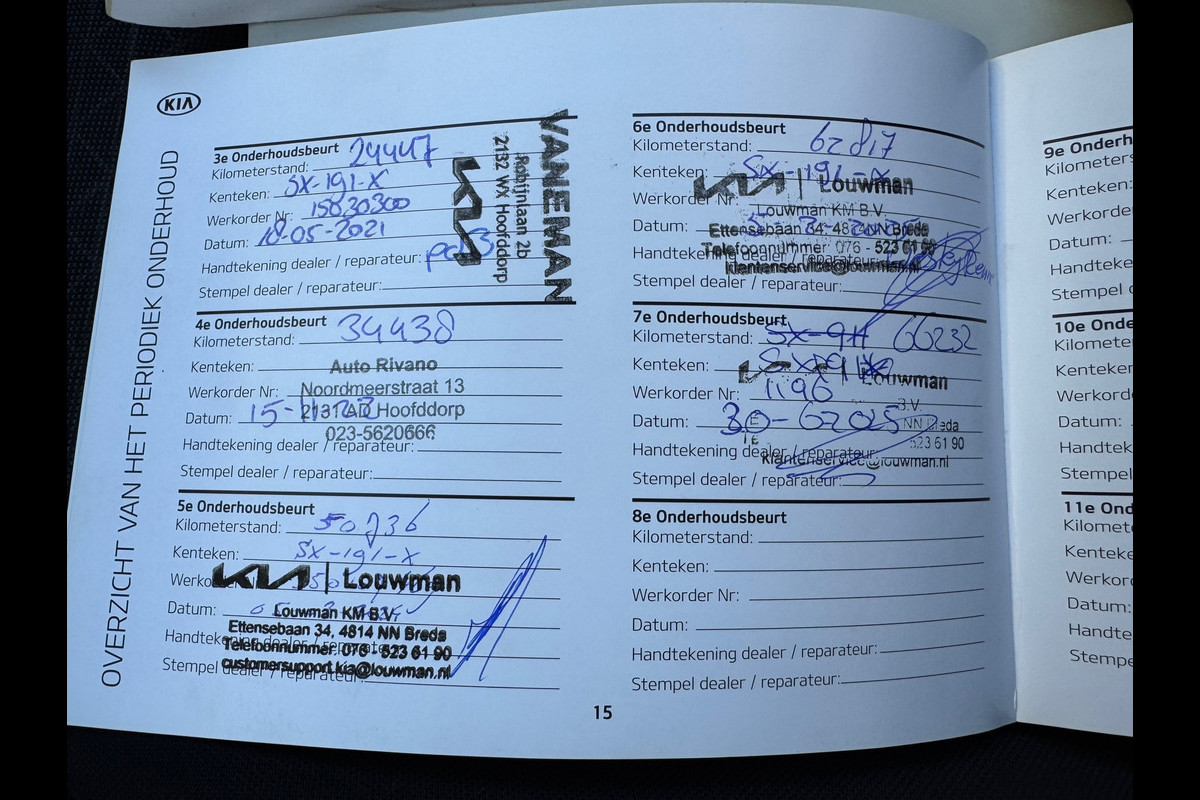 KIA
OVERZICHT VAN HET PERIODIEK ONDERHOUD
3e Onderhoudsbeurt
Kilometerstand: 24447
Kenteken: SX-191-X
Werkorder Nr: 15830300
Datum: 18-05-2021
Handtekening dealer / reparateur:
Stempel dealer / reparateur:
VANEMAN
Robijnlaan 2b
2132 WX Hoofddorp
KIA
4e Onderhoudsbeurt
Kilometerstand: 34438
Kenteken:
Werkorder Nr:
Datum: 15-11-23
Handtekening dealer / reparateur:
Stempel dealer / reparateur:
Auto Rivano
Noordmeerstraat 13
2131 AD Hoofddorp
023-5620666
5e Onderhoudsbeurt
Kilometerstand: 50736
Kenteken: SX-191-X
Datum:
Handtekening dealer / reparateur:
Stempel dealer / reparateur:
KIA | Louwman
Louwman KM B.V.
Ettensebaan 34, 4814 NN Breda
Telefoonnummer: 076 - 523 61 90
customersupport.kia@louwman.nl
6e Onderhoudsbeurt
Kilometerstand: 62817
Kenteken: SX-191-X
Werkorder Nr:
Datum:
Handtekening dealer / reparateur:
Stempel dealer / reparateur:
KIA | Louwman
Louwman KM B.V.
Ettensebaan 34, 4814 NN Breda
Telefoonnummer: 076 - 523 61 90
klantenservice@louwman.nl
7e Onderhoudsbeurt
Kilometerstand: 66232
Kenteken:
Werkorder Nr: 1196
Datum: 30-6-2025
Handtekening dealer / reparateur:
Stempel dealer / reparateur:
Louwman
B.V.
NN Breda
523 61 90
klantenservice@louwman.nl
8e Onderhoudsbeurt
Kilometerstand:
Kenteken:
Werkorder Nr:
Datum:
Handtekening dealer / reparateur:
Stempel dealer / reparateur:
15
9e Onderh
Kilometers
Kenteken:
Werkorder
Datum:
Handteke
Stempel d
10e Onde
Kilometer
Kenteken
Werkorde
Datum:
Handtek
Stempel
11e Ond
Kilomet
Kenteke
Werkor
Datum:
Handte
Stempe